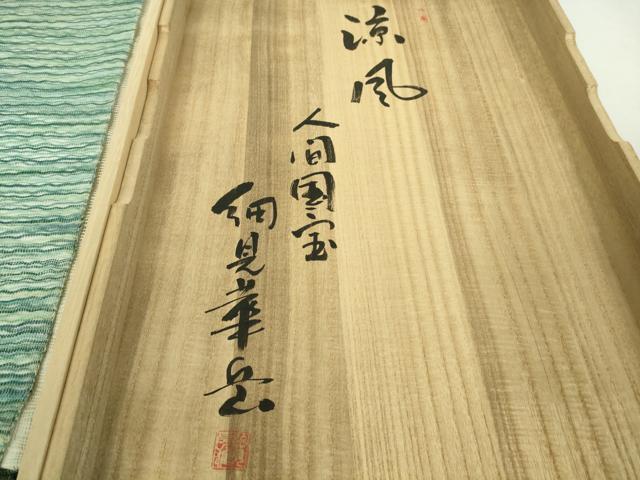 涼風
人間国宝
細見華岳